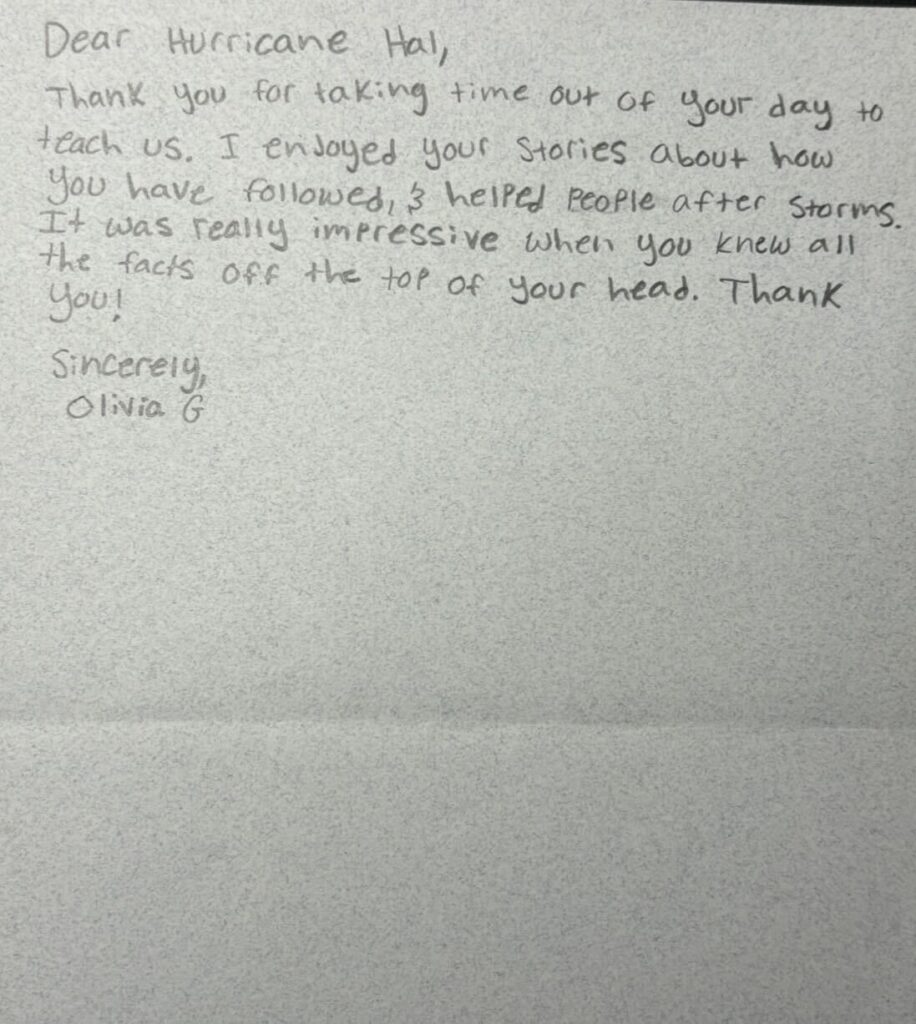 Dear Hurricane Hal,
Thank you for taking time out of your day to
teach us. I enjoyed your stories about how
you have followed, & helped people after storms.
It was really impressive when you knew all
the facts off the top of your head. Thank
you!
Sincerely,
Olivia G